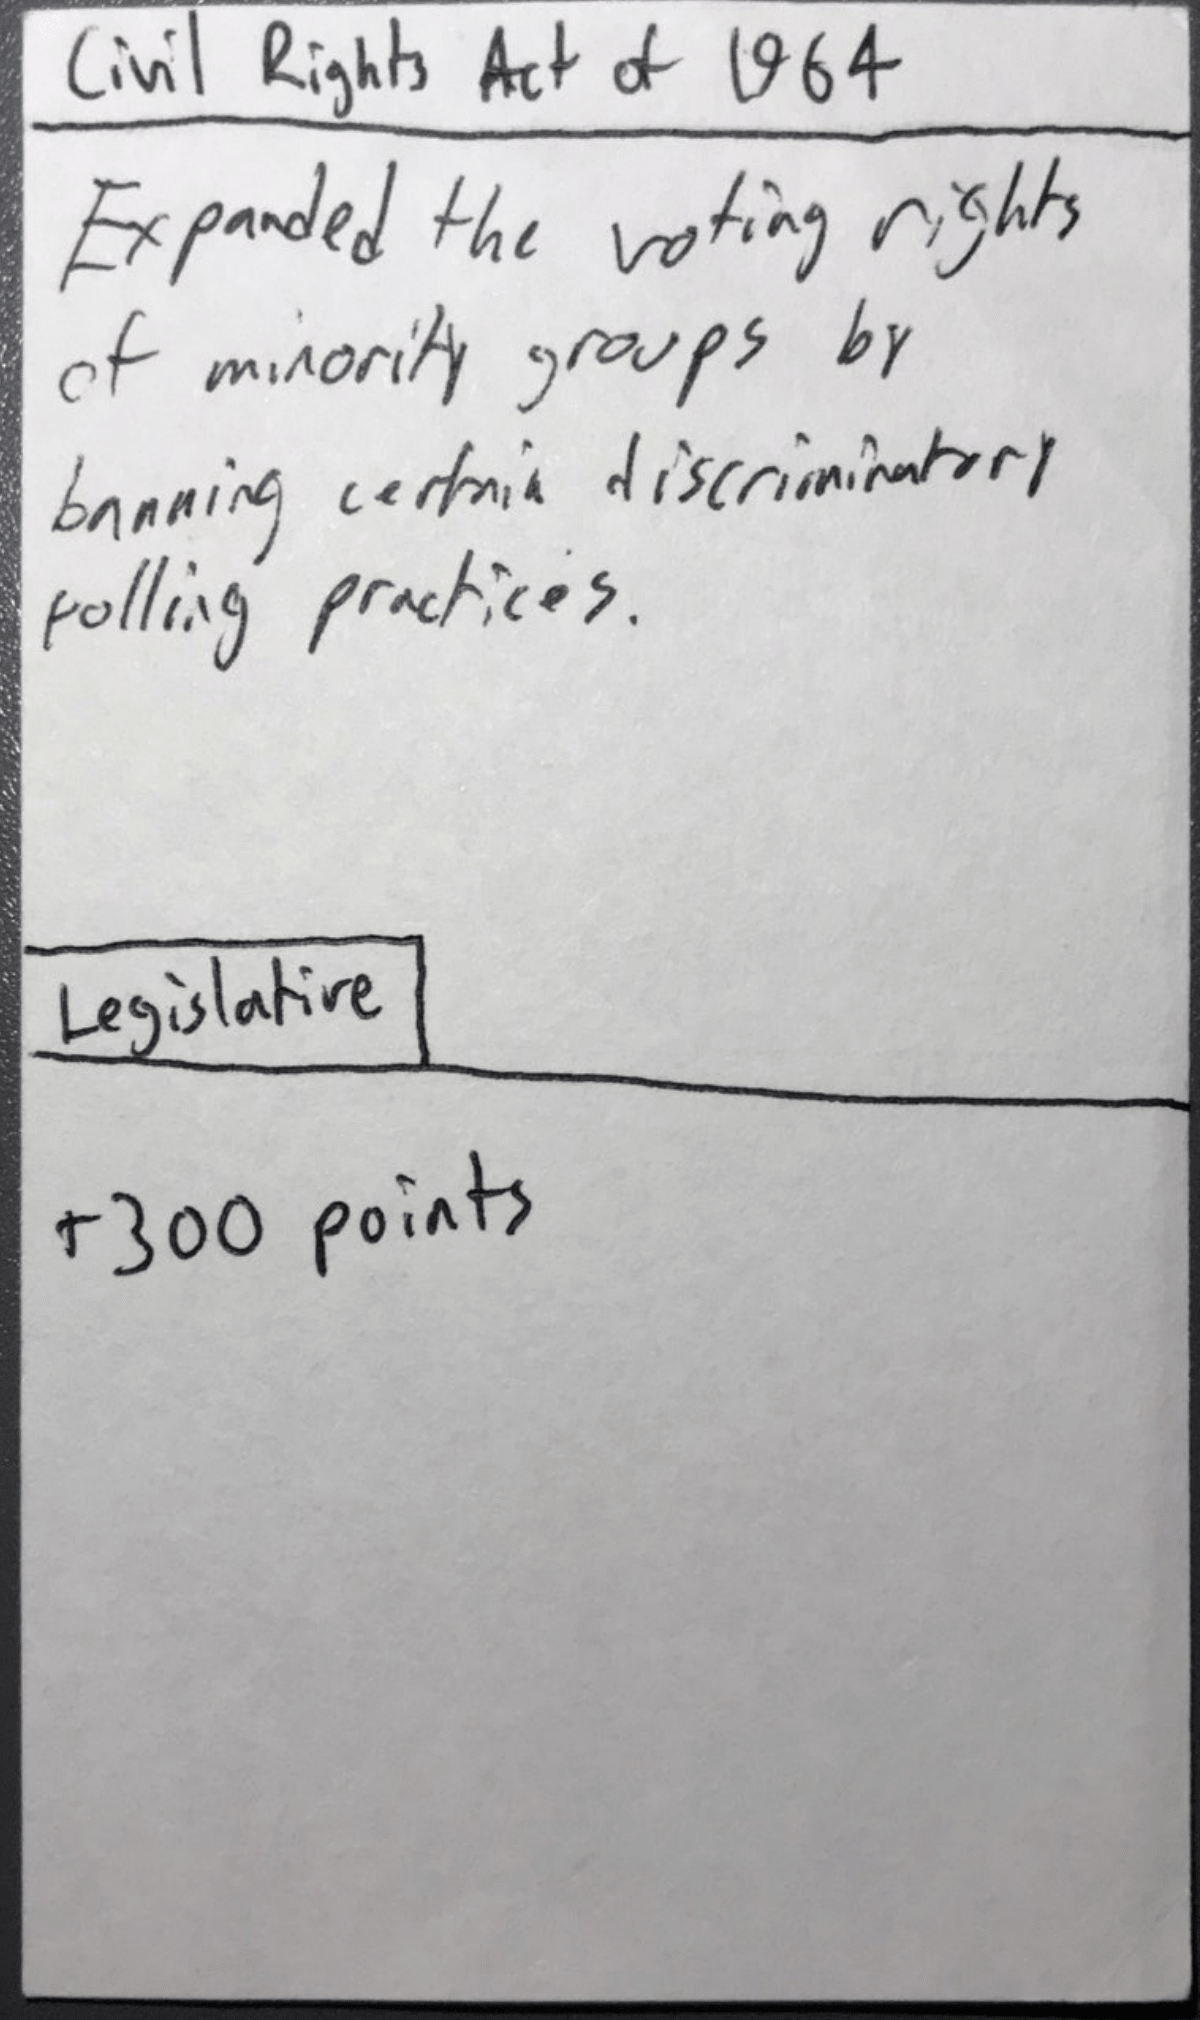 Civil Rights Act of 1964
Expanded the voting rights
of minority groups by
banning certain discriminatory
polling practices.
Legislative
+300 points